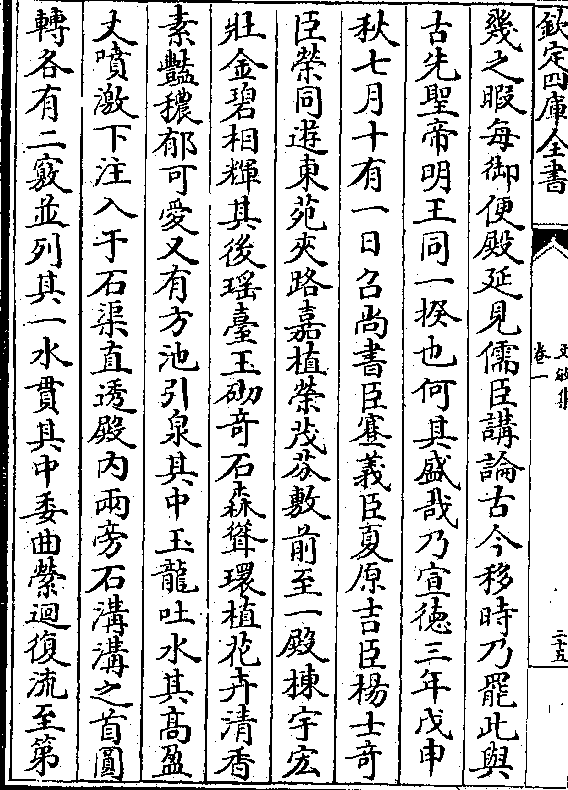 欽定四庫全書
卷一
二十五
幾之暇每御便殿延見儒臣講論古今移時乃罷此與
古先聖帝明王同一揆也何其盛哉乃宣徳三年戊申
秋七月十有一日召尚書臣蹇義臣夏原吉臣楊士竒
臣榮同遊東苑夾路嘉植榮茂芬敷前至一殿棟宇宏
壯金碧相輝其後瑶臺玉砌竒石森聳環植花卉清香
素艷穠郁可愛又有方池引泉其中玉龍吐水其髙盈
丈噴激下注入于石渠直透殿内兩旁石溝溝之首圓
轉各有二竅並列其一水貫其中委曲縈迴復流至第